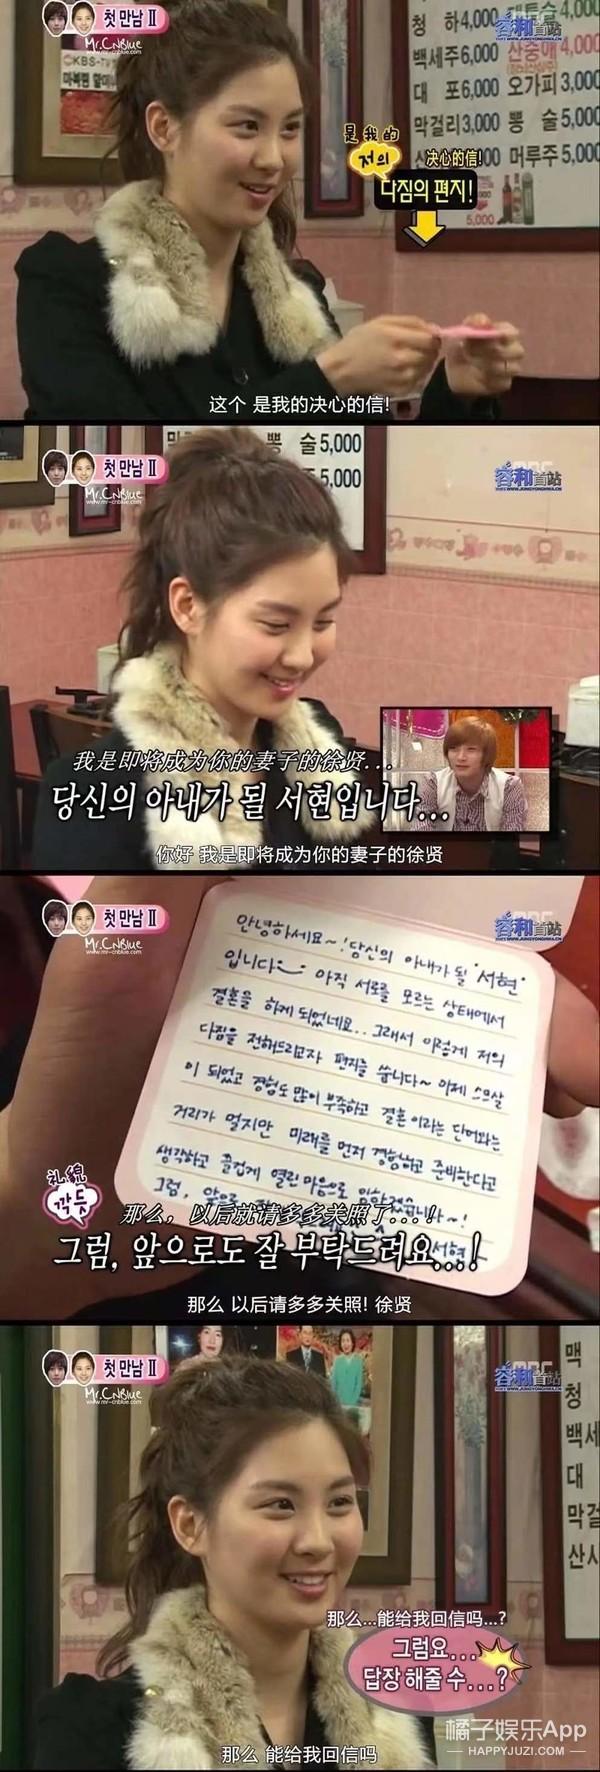 첫 만남 II
Mr.CNBlue
www.mr-cnblue.com
KBS-TV
청 하 4,000
백세주 6,000
대 포 6,000
막걸리 3,000
4,000
산중애 4,000
오가피 3,000
뽕 술 5,000
머루주 5,000
5,000
容和首站
WWW.JUNGYONGHWA.CN
是我的
저의
决心的信!
다짐의 편지!
这个 是我的决心的信!
첫 만남 II
Mr.CNBlue
www.mr-cnblue.com
뽕 술 5,000
5,000
容和首站
WWW.JUNGYONGHWA.CN
我是即将成为你的妻子的徐贤...
당신의 아내가 될 서현입니다...
你好 我是即将成为你的妻子的徐贤
첫 만남 II
Mr.CNBlue
www.mr-cnblue.com
容和首站
WWW.JUNGYONGHWA.CN
안녕하세요~! 당신의 아내가 될 "서현"
입니다 아직 서로를 모르는 상태에서
결혼을 하게 되었네요.. 그래서 이렇게 저의
다짐을 전해드리고자 편지를 씁니다~ 이제 스무살
이 되었고 경험도 많이 부족하고 결혼이라는 단어와는
거리가 멀지만 미래를 먼저 경험하고 준비한다고
생각하고 즐겁게 열린 마음으로 임하겠습니다~!
그럼, 앞으로
서현
礼貌
깍듯
那么，以后就请多多关照了...!
그럼, 앞으로도 잘 부탁드려요...!
那么 以后请多多关照! 徐贤
첫 만남 II
Mr.CNBlue
www.mr-cnblue.com
容和首站
WWW.JUNGYONGHWA.CN
맥
청
백세
대
막걸
산사
那么...能给我回信吗...?
그럼요...
답장 해줄 수...?
那么 能给我回信吗
橘子娱乐App
HAPPYJUZI.COM